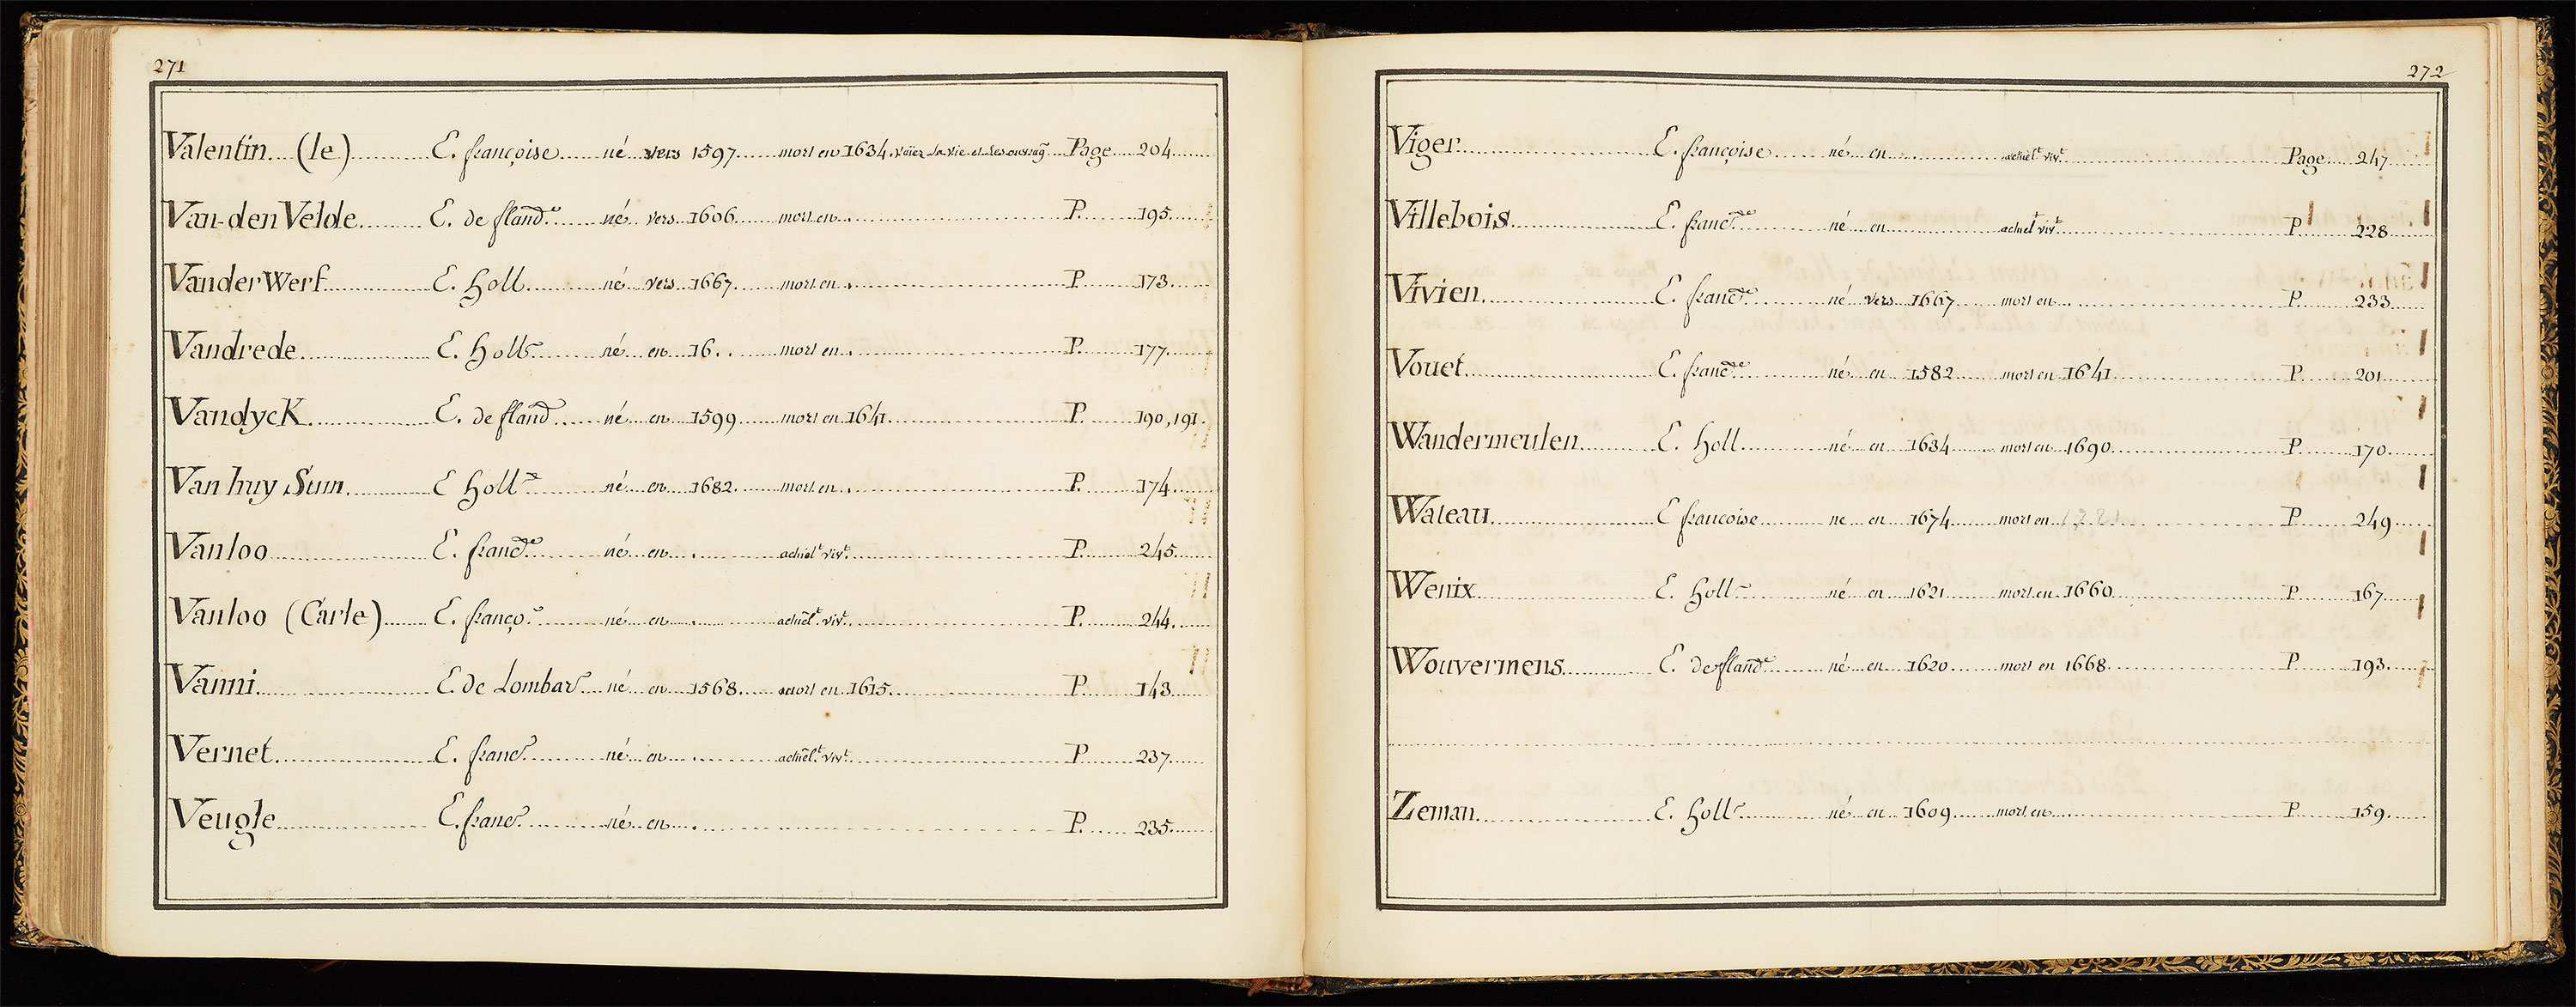 271
Valentin (le) E. françoise né vers 1597 mort en 1634. voiez sa vie et ses ouvrag. Page 204
Van-den Velde E. de fland.e né vers 1606 mort en . P. 195
Vander Werf E. holl. né vers 1667 mort en . P. 173
Vandrede E. holl.e né en 16.. mort en . P. 177
Vandyck E. de fland né en 1599 mort en 1641 P. 190, 191
Van huy Sum E holl.e né en 1682 mort en . P. 174
Vanloo E. franc.se né en . actuel.t viv.t P. 245
Vanloo (Carle) E. franço.e né en . actuel.t viv.t P. 244
Vanni E. de Lombar.e né en 1568 mort en 1615 P. 143
Vernet E. franc.e né en . actuel.t viv.t P 237
Veugle E. franc.e né en . P. 235
272
Viger E. françoise né en . actuel.t viv.t Page 247
Villebois E. franc.se né en actuel.t viv.t P 228
Vivien E. franc.se né vers 1667 mort en . P. 233
Vouet E. franc.se né en 1582 mort en 1641 P. 201
Wandermeulen E. holl. né en 1634 mort en 1690 P 170
Wateau E francoise ne en 1674 mort en P 249
Wenix E. holl.e né en 1621 mort en 1660 P 167
Wouvermens E. de fland.e né en 1620 mort en 1668 P 193
Zeman E. holl.e né en 1609 mort en P 159